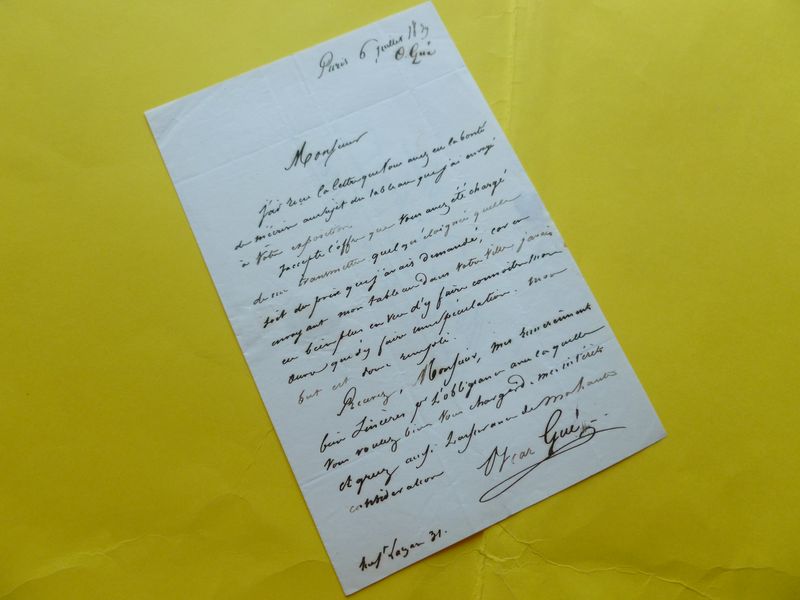 Paris 6 juillet 183
O. Gué
Monsieur
J'ai reçu la lettre que vous avez eu la bonté
de m'écrire au sujet du tableau que j'ai envoyé
à votre exposition.
J'accepte l'offre que vous avez été chargé
de me transmettre quelqu'éloignée quelle
soit du prix que j'avais demandé, car en
envoyant mon tableau dans votre ville j'avais
eu bien plus en vue d'y faire connoître mon
œuvre que d'y faire une spéculation. mon
but est donc rempli.
Recevez, Monsieur, mes remerciments
bien sincères pr l'obligeance avec laquelle
vous voulez bien vous charger de mes intérêts
et agréez aussi l'assurance de ma haute
considération
Oscar Gué
rue St Lazare 31.